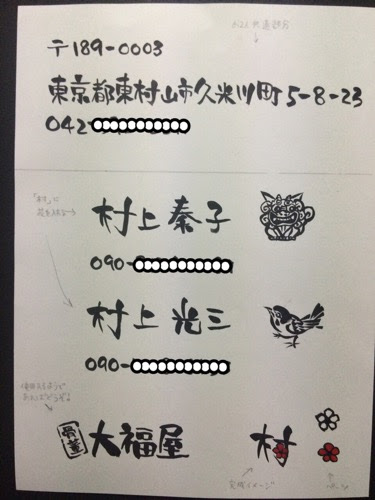 〒189-0003
東京都東村山市久米川町5-8-23
042-
村上泰子
090-
村上光三
090-
骨董 大福屋
村
完成イメージ